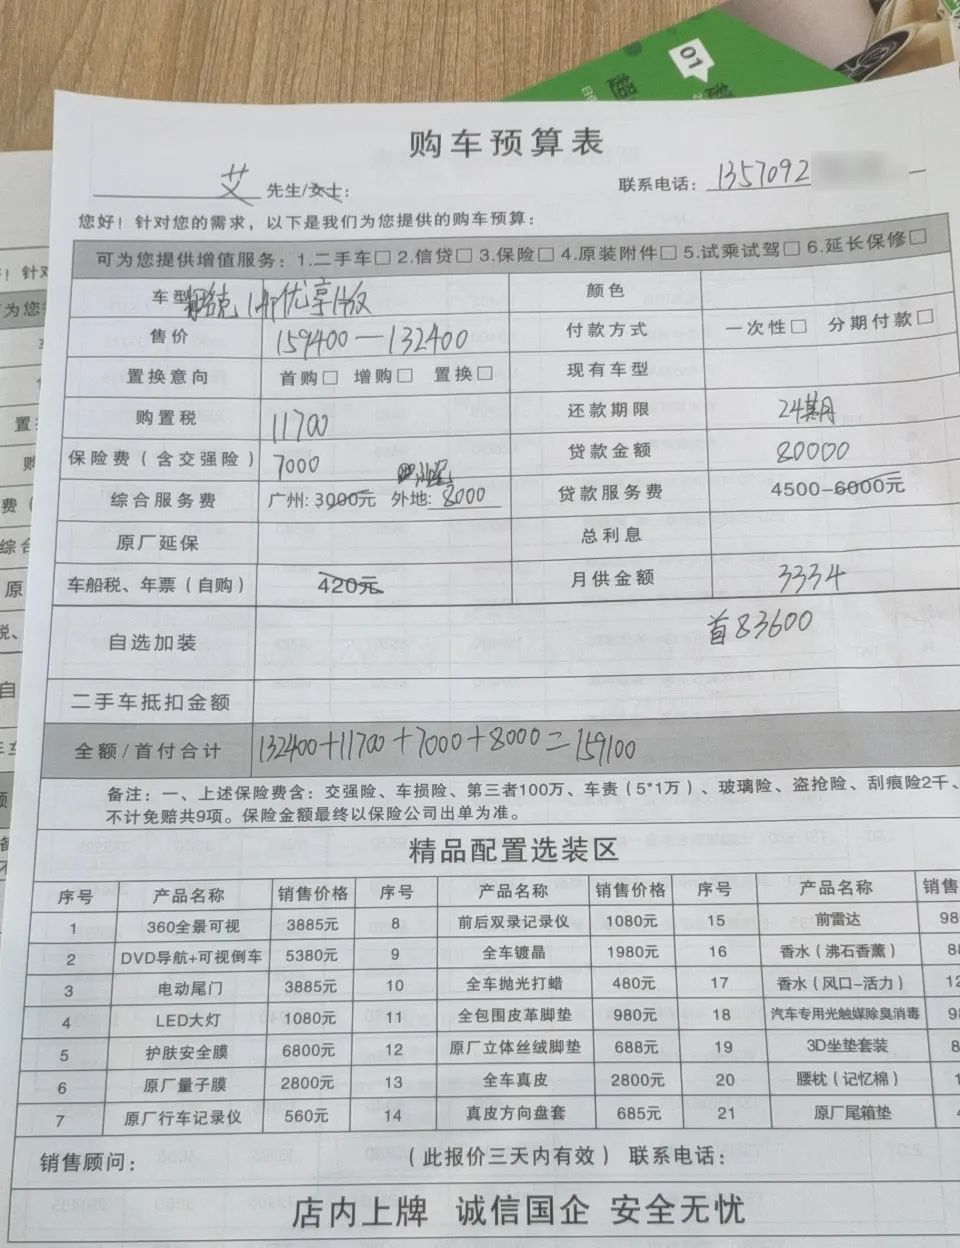 01
超
购车预算表
艾 先生/女士： 联系电话： 1357092
您好！针对您的需求，以下是我们为您提供的购车预算：
可为您提供增值服务：1.二手车□ 2.信贷□ 3.保险□ 4.原装附件□ 5.试乘试驾□ 6.延长保修□
车型 优享 版 颜色
售价 159400—132400 付款方式 一次性□ 分期付款□
置换意向 首购□ 增购□ 置换□ 现有车型
购置税 11700 还款期限 24期
保险费（含交强险） 7000 贷款金额 80000
综合服务费 广州: 3000元 外地: 8000 贷款服务费 4500-6000元
原厂延保 总利息
车船税、年票（自购） 420元 月供金额 3334
自选加装 首83600
二手车抵扣金额
全额/首付合计 132400+11700+7000+8000=159100
备注：一、上述保险费含：交强险、车损险、第三者100万、车责（5*1万）、玻璃险、盗抢险、刮痕险2千、
不计免赔共9项。保险金额最终以保险公司出单为准。
精品配置选装区
序号 产品名称 销售价格 序号 产品名称 销售价格 序号 产品名称 销售
1 360全景可视 3885元 8 前后双录记录仪 1080元 15 前雷达 98
2 DVD导航+可视倒车 5380元 9 全车镀晶 1980元 16 香水（沸石香薰） 88
3 电动尾门 3885元 10 全车抛光打蜡 480元 17 香水（风口-活力） 12
4 LED大灯 1080元 11 全包围皮革脚垫 980元 18 汽车专用光触媒除臭消毒 98
5 护肤安全膜 6800元 12 原厂立体丝绒脚垫 688元 19 3D坐垫套装 8
6 原厂量子膜 2800元 13 全车真皮 2800元 20 腰枕（记忆棉） 1
7 原厂行车记录仪 560元 14 真皮方向盘套 685元 21 原厂尾箱垫 4
销售顾问： （此报价三天内有效） 联系电话：
店内上牌 诚信国企 安全无忧